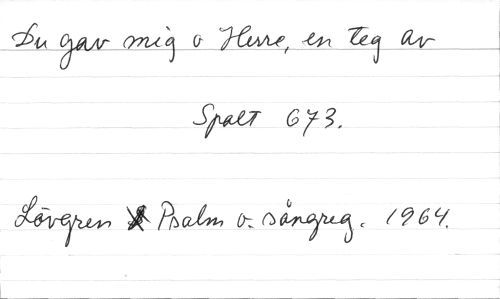 Du gav mig o Herre, en teg av
Spalt 673.
Lövgren Psalm o. sångreg. 1964.